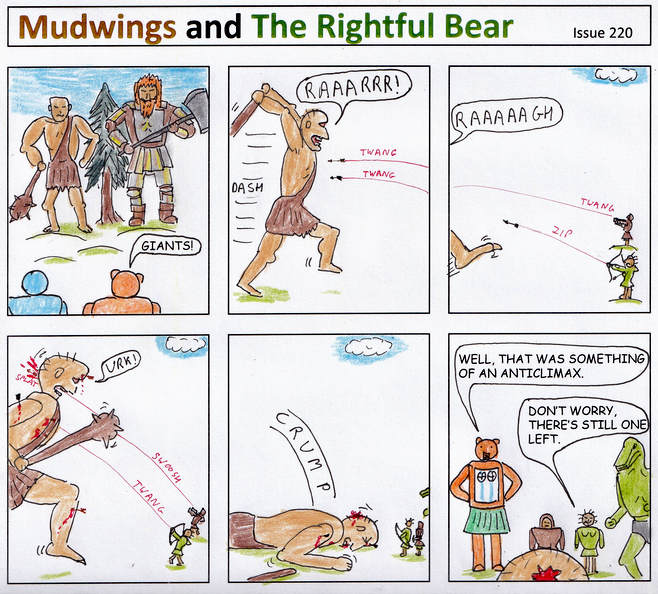 Mudwings and The Rightful Bear
Issue 220
GIANTS!
RAAARRR!
TWANG
TWANG
DASH
RAAAAAGH
TWANG
ZIP
URK!
SPLAT
SWOOSH
TWANG
CRUMP
WELL, THAT WAS SOMETHING
OF AN ANTICLIMAX.
DON'T WORRY,
THERE'S STILL ONE
LEFT.